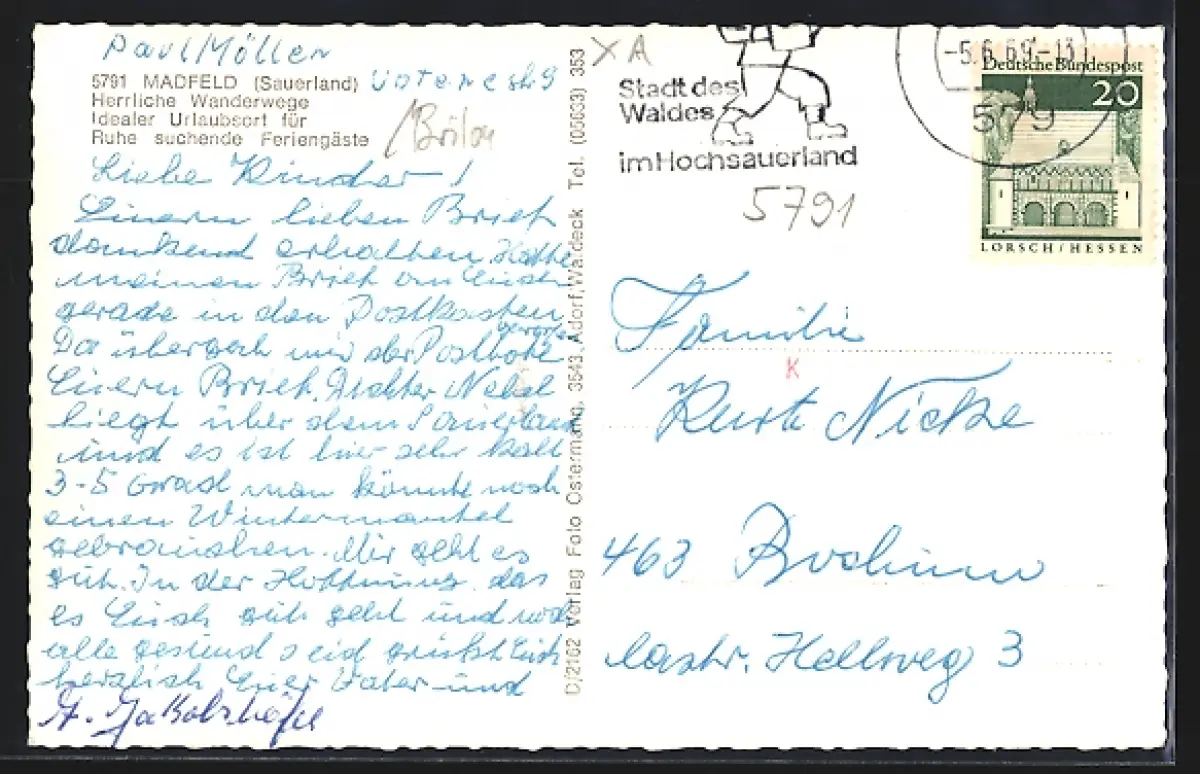 Paul Möller
5791 MADFELD (Sauerland)
Herrliche Wanderwege
Idealer Urlaubsort für
Ruhe suchende Feriengäste
Liebe Kinder!
Euern lieben Brief
dankend erhalten Hatte
meinen Brief an Euch
gerade in den Postkasten
Da übergab mir der Postbote
Euern Brief. Dichter Nebel
liegt über dem Sauerland
und es ist hier sehr kalt
3-5 Grad man könnte noch
einen Wintermantel
gebrauchen. Mir geht es
gut. In der Hoffnung das
es Euch gut geht und noch
alle gesund seid grüßt Euch
herzlich Euer Vater und
D/2162 Verlag Foto Ostermann, 3543 Adorf/Waldeck Tel. (05633) 353
XA
Stadt des
Waldes
im Hochsauerland
-5.6.69.-13
579
Deutsche Bundespost
20
LORSCH/HESSEN
5791
Familie
K
Kurt Nicke
463 Bochum
Castr. Hellweg 3